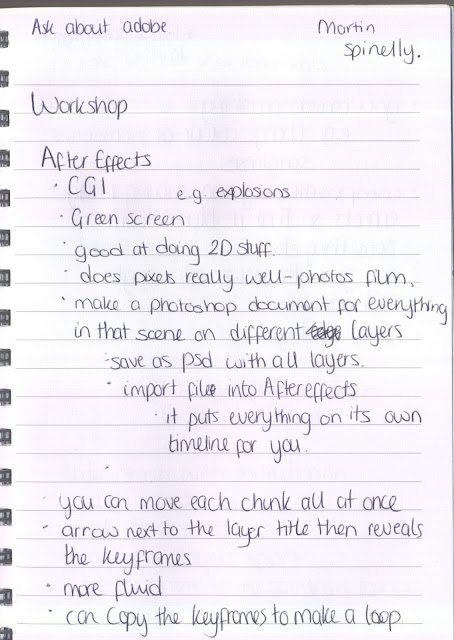 Ask about adobe
Martin
Spinelly.
Workshop
After Effects
· CGI e.g. explosions
· Green screen
· good at doing 2D stuff.
· does pixels really well - photos film.
· make a photoshop document for everything
in that scene on different layers
· save as psd with all layers.
· import file into Aftereffects
· it puts everything on its own
timeline for you.
· you can move each chunk all at once
· arrow next to the layer title then reveals
the keyframes
· more fluid
· can copy the keyframes to make a loop.